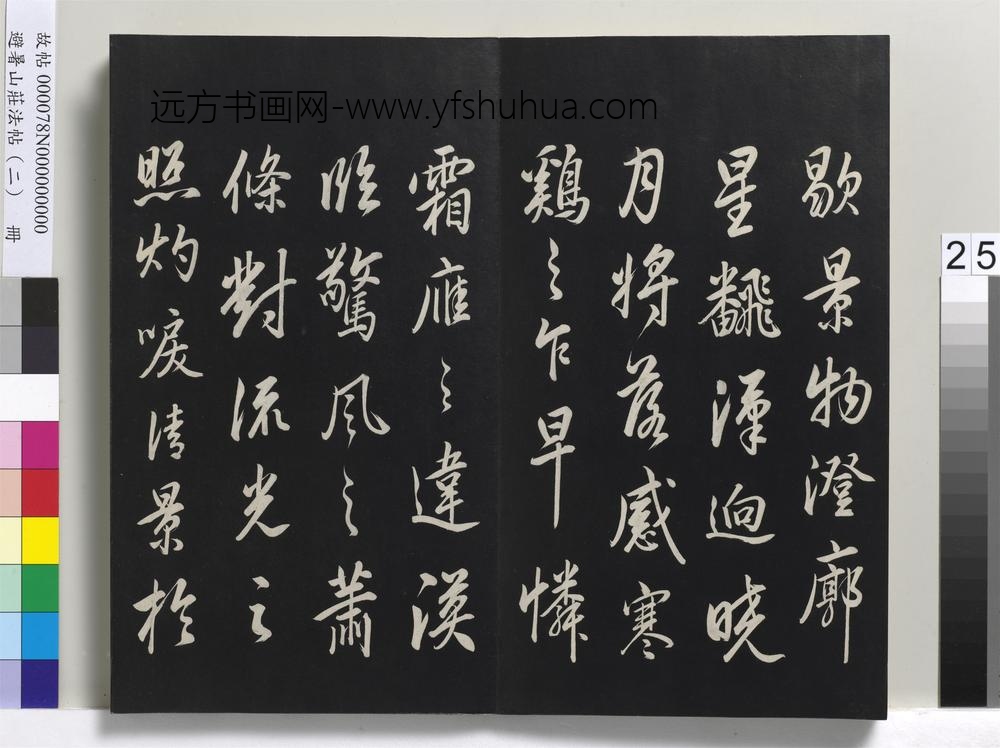 歇景物澄廓
星飜漢迥曉
月將落感寒
鷄之乍早憐
霜雁之違漠
臨驚風之蕭
條對流光之
照灼唳清景於
远方书画网-www.yfshuhua.com
故帖 000078N000000000
避暑山莊法帖（二） 冊
25